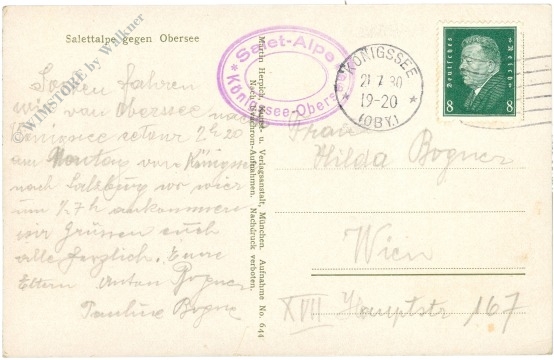 Salettalpe gegen Obersee
WIMSTORE by Walkner
Soeben fahren
wir von Obersee nach
Königssee retour 2h20
am Montag von Königssee
nach Salzburg wo wir
um ½7h ankommen
wir Grüssen euch
alle herzlich. Eure
Eltern Anton Bogner
Pauline Bogner
Martin Herpich, Kunst- u. Verlagsanstalt, München. Aufnahme No. 644
Nachdruck verboten.
Salet-Alpe
* Königssee-Obersee *
KÖNIGSSEE
21 7 30
19-20
* (OBY.) *
Deutsches Reich
8 8
Frau
Hilda Bogner
Wien
XVII Hauptstr 167